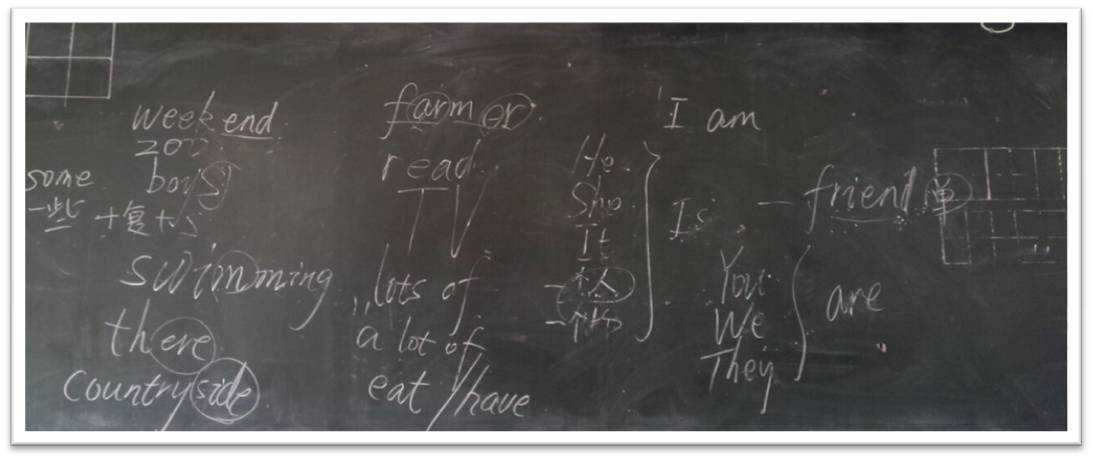 weekend
zoo
boys
some
一些 +复+s
swimming
there
countryside
farmer
read
TV
lots of
a lot of
eat/have
I am
He
She
It
一个人
Is
friend 单
You
We
They
are